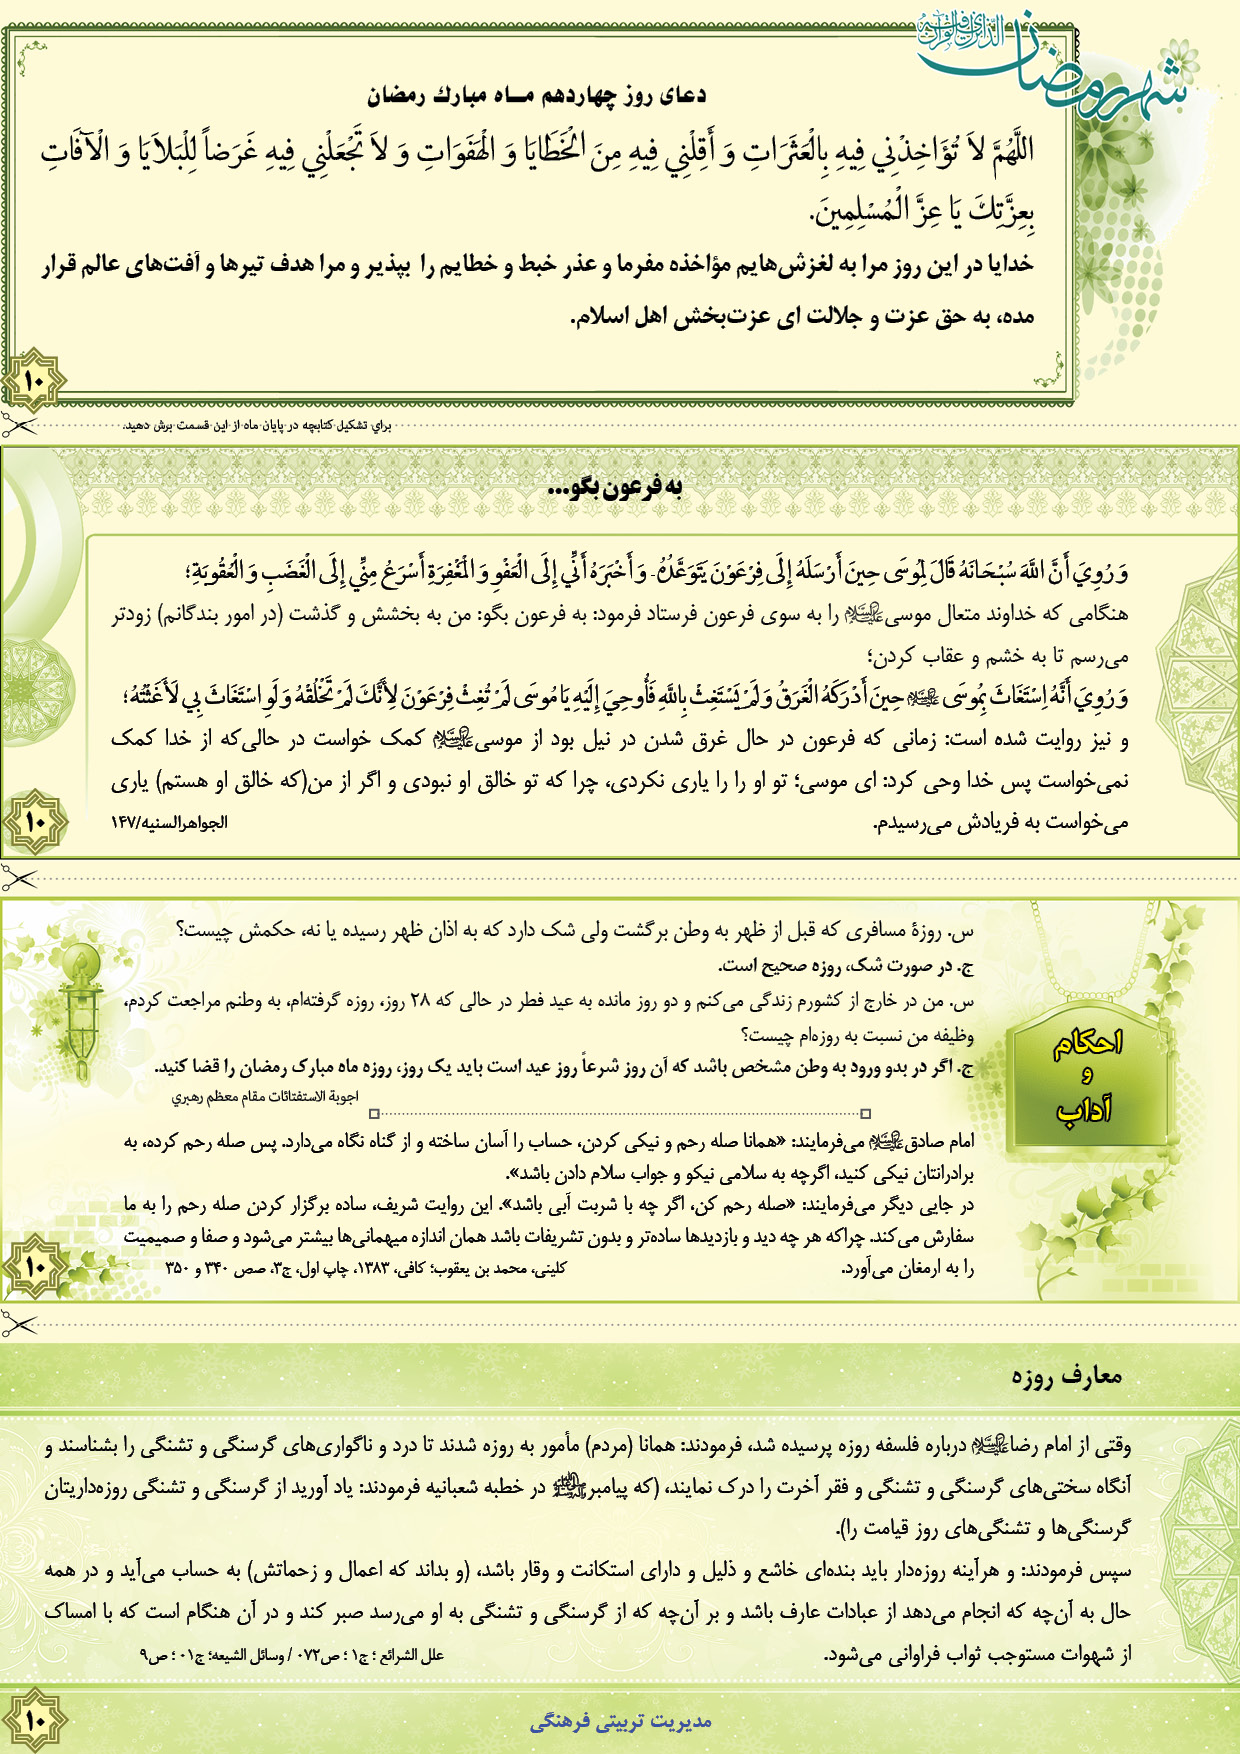 شهر رمضان الذی انزل فیه القرآن
دعای روز چهاردهم مـاه مبارك رمضان
اللَّهُمَّ لاَ تُؤَاخِذْنِي فِيهِ بِالْعَثَرَاتِ وَ أَقِلْنِي فِيهِ مِنَ الْخَطَايَا وَ الْهَفَوَاتِ وَ لاَ تَجْعَلْنِي فِيهِ غَرَضاً لِلْبَلاَيَا وَ الْآفَاتِ
بِعِزَّتِكَ يَا عِزَّ الْمُسْلِمِينَ.
خدایا در این روز مرا به لغزش‌هایم مؤاخذه مفرما و عذر خبط و خطایم را بپذیر و مرا هدف تیرها و آفت‌های عالم قرار
مده، به حق عزت و جلالت ای عزت‌بخش اهل اسلام.
۱۰
براي تشکیل کتابچه در پایان ماه از این قسمت برش دهید.
به فرعون بگو...
وَ رُوِيَ أَنَّ اللَّهَ سُبْحَانَهُ قَالَ لِمُوسَى حِينَ أَرْسَلَهُ إِلَى فِرْعَوْنَ يَتَوَعَّدُهُ- وَ أَخْبَرَهُ أَنِّي إِلَى الْعَفْوِ وَ الْمَغْفِرَةِ أَسْرَعُ مِنِّي إِلَى الْغَضَبِ وَ الْعُقُوبَةِ؛
هنگامی که خداوند متعال موسی علیه‌السلام را به سوی فرعون فرستاد فرمود: به فرعون بگو: من به بخشش و گذشت (در امور بندگانم) زودتر
می‌رسم تا به خشم و عقاب کردن؛
وَ رُوِيَ أَنَّهُ اِسْتَغَاثَ بِمُوسَى علیه‌السلام حِينَ أَدْرَكَهُ الْغَرَقُ وَ لَمْ يَسْتَغِثْ بِاللَّهِ فَأُوحِيَ إِلَيْهِ يَا مُوسَى لَمْ تُغِثْ فِرْعَوْنَ لِأَنَّكَ لَمْ تَخْلُقْهُ وَ لَوِ اسْتَغَاثَ بِي لَأَغَثْتُهُ؛
و نیز روایت شده است: زمانی که فرعون در حال غرق شدن در نیل بود از موسی علیه‌السلام کمک خواست در حالی‌که از خدا کمک
نمی‌خواست پس خدا وحی کرد: ای موسی؛ تو او را را یاری نکردی، چرا که تو خالق او نبودی و اگر از من(که خالق او هستم) یاری
می‌خواست به فریادش می‌رسیدم. الجواهرالسنیه/۱۴۷
۱۰
احکام
و
آداب
س. روزهٔ مسافری که قبل از ظهر به وطن برگشت ولی شک دارد که به اذان ظهر رسیده یا نه، حکمش چیست؟
ج. در صورت شک، روزه صحیح است.
س. من در خارج از کشورم زندگی می‌کنم و دو روز مانده به عید فطر در حالی که ۲۸ روز، روزه گرفته‌ام، به وطنم مراجعت کردم،
وظیفه من نسبت به روزه‌ام چیست؟
ج. اگر در بدو ورود به وطن مشخص باشد که آن روز شرعاً روز عید است باید یک روز، روزه ماه مبارک رمضان را قضا کنید.
اجوبة الاستفتائات مقام معظم رهبري
امام صادق علیه‌السلام می‌فرمایند: «همانا صله رحم و نیکی کردن، حساب را آسان ساخته و از گناه نگاه می‌دارد. پس صله رحم کرده، به
برادرانتان نیکی کنید، اگرچه به سلامی نیکو و جواب سلام دادن باشد».
در جایی دیگر می‌فرمایند: «صله رحم کن، اگر چه با شربت آبی باشد». این روایت شریف، ساده برگزار کردن صله رحم را به ما
سفارش می‌کند. چراکه هر چه دید و بازدیدها ساده‌تر و بدون تشریفات باشد همان اندازه میهمانی‌ها بیشتر می‌شود و صفا و صمیمیت
را به ارمغان می‌آورد. کلینی، محمد بن یعقوب؛ کافی، ۱۳۸۳، چاپ اول، ج۳، صص ۳۴۰ و ۳۵۰
۱۰
معارف روزه
وقتی از امام رضا علیه‌السلام درباره فلسفه روزه پرسیده شد، فرمودند: همانا (مردم) مأمور به روزه شدند تا درد و ناگواری‌های گرسنگی و تشنگی را بشناسند و
آنگاه سختی‌های گرسنگی و تشنگی و فقر آخرت را درک نمایند، (که پیامبر صلی‌الله‌علیه‌وآله در خطبه شعبانیه فرمودند: یاد آورید از گرسنگی و تشنگی روزه‌داریتان
گرسنگی‌ها و تشنگی‌های روز قیامت را).
سپس فرمودند: و هرآینه روزه‌دار باید بنده‌ای خاشع و ذلیل و دارای استکانت و وقار باشد، (و بداند که اعمال و زحماتش) به حساب می‌آید و در همه
حال به آن‌چه که انجام می‌دهد از عبادات عارف باشد و بر آن‌چه که از گرسنگی و تشنگی به او می‌رسد صبر کند و در آن هنگام است که با امساک
از شهوات مستوجب ثواب فراوانی می‌شود. علل الشرائع ؛ ج۱ ؛ ص۰۷۲ / وسائل الشیعه؛ ج۰۱ ؛ ص۹
۱۰
مدیریت تربیتی فرهنگی